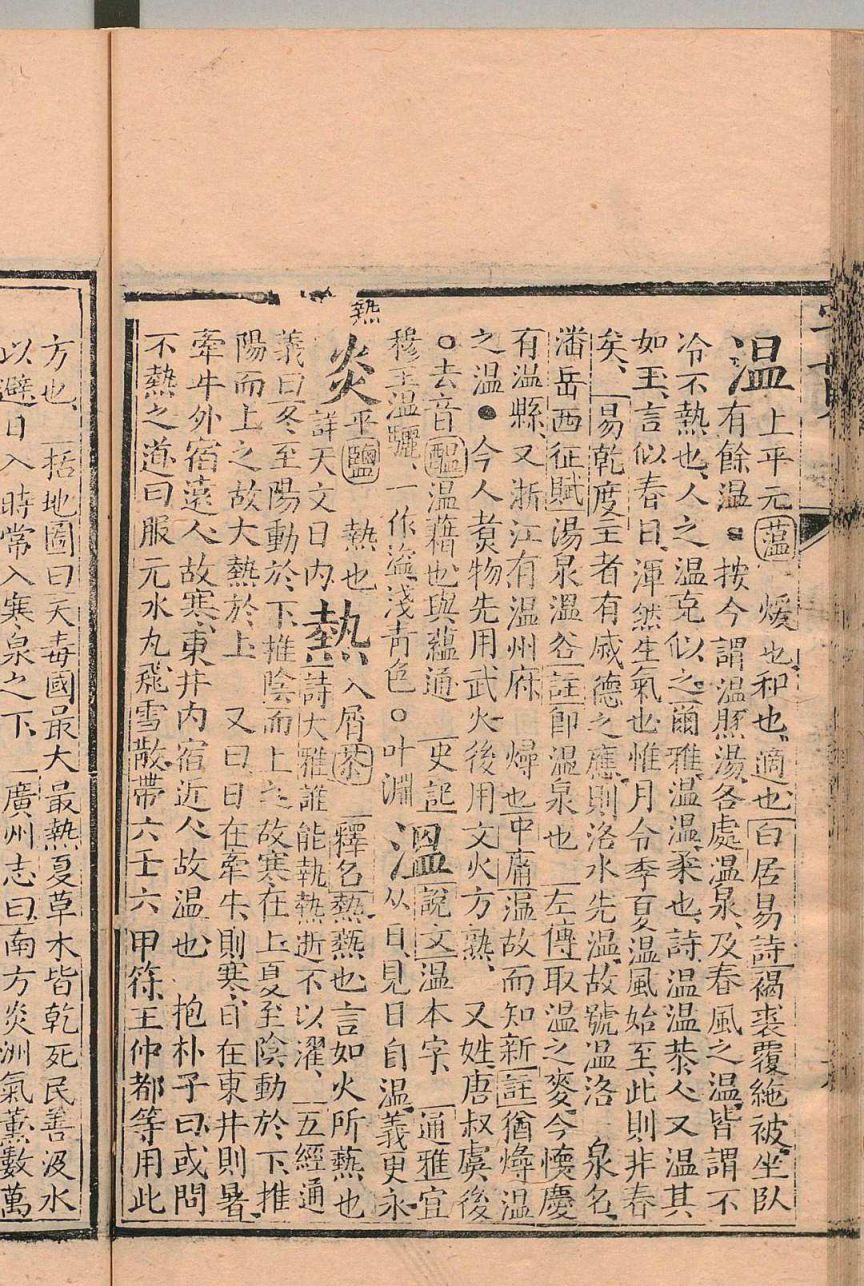 温上平元蕰煖也和也適也白居易詩褐裘覆絁被坐臥
有餘温按今謂温豚湯各處温泉及春風之温皆謂不
冷不熱也人之温克似之爾雅温温柔也詩温温恭人又温其
如玉言似春日渾然生氣也惟月令季夏温風始至此則非春
矣易乾度王者有盛德之應則洛水先温故號温洛 泉名
潘岳西征賦湯泉溫谷註即温泉也 左傳取温之麥今懷慶
有温縣又浙江有温州府 燖也中庸温故而知新註猶燖温
之温●今人煑物先用武火後用文火方熟 又姓唐叔虞後
○去音醖温藉也與蘊通 史記
穆王温驪一作盜淺青色○叶淵
溫說文温本字 通雅宜
从日見日自温義更永
熱
炎平鹽 熱也
詳天文日内
熱入屑茶 釋名熱爇也言如火所爇也
詩大雅誰能執熱逝不以濯 五經通
義曰冬至陽動於下推陰而上之故寒在上夏至陰動於下推
陽而上之故大熱於上 又曰日在牽牛則寒日在東井則暑
牽牛外宿遠人故寒東井内宿近人故温也 抱朴子曰或問
不熱之道曰服元水丸飛雪散帶六壬六甲符王仲都等用此
方也 括地圖曰天毒國最大最熱夏草木皆乾死民善汲水
以避日入時常入寒泉之下 廣州志曰南方炎洲氣薰數萬